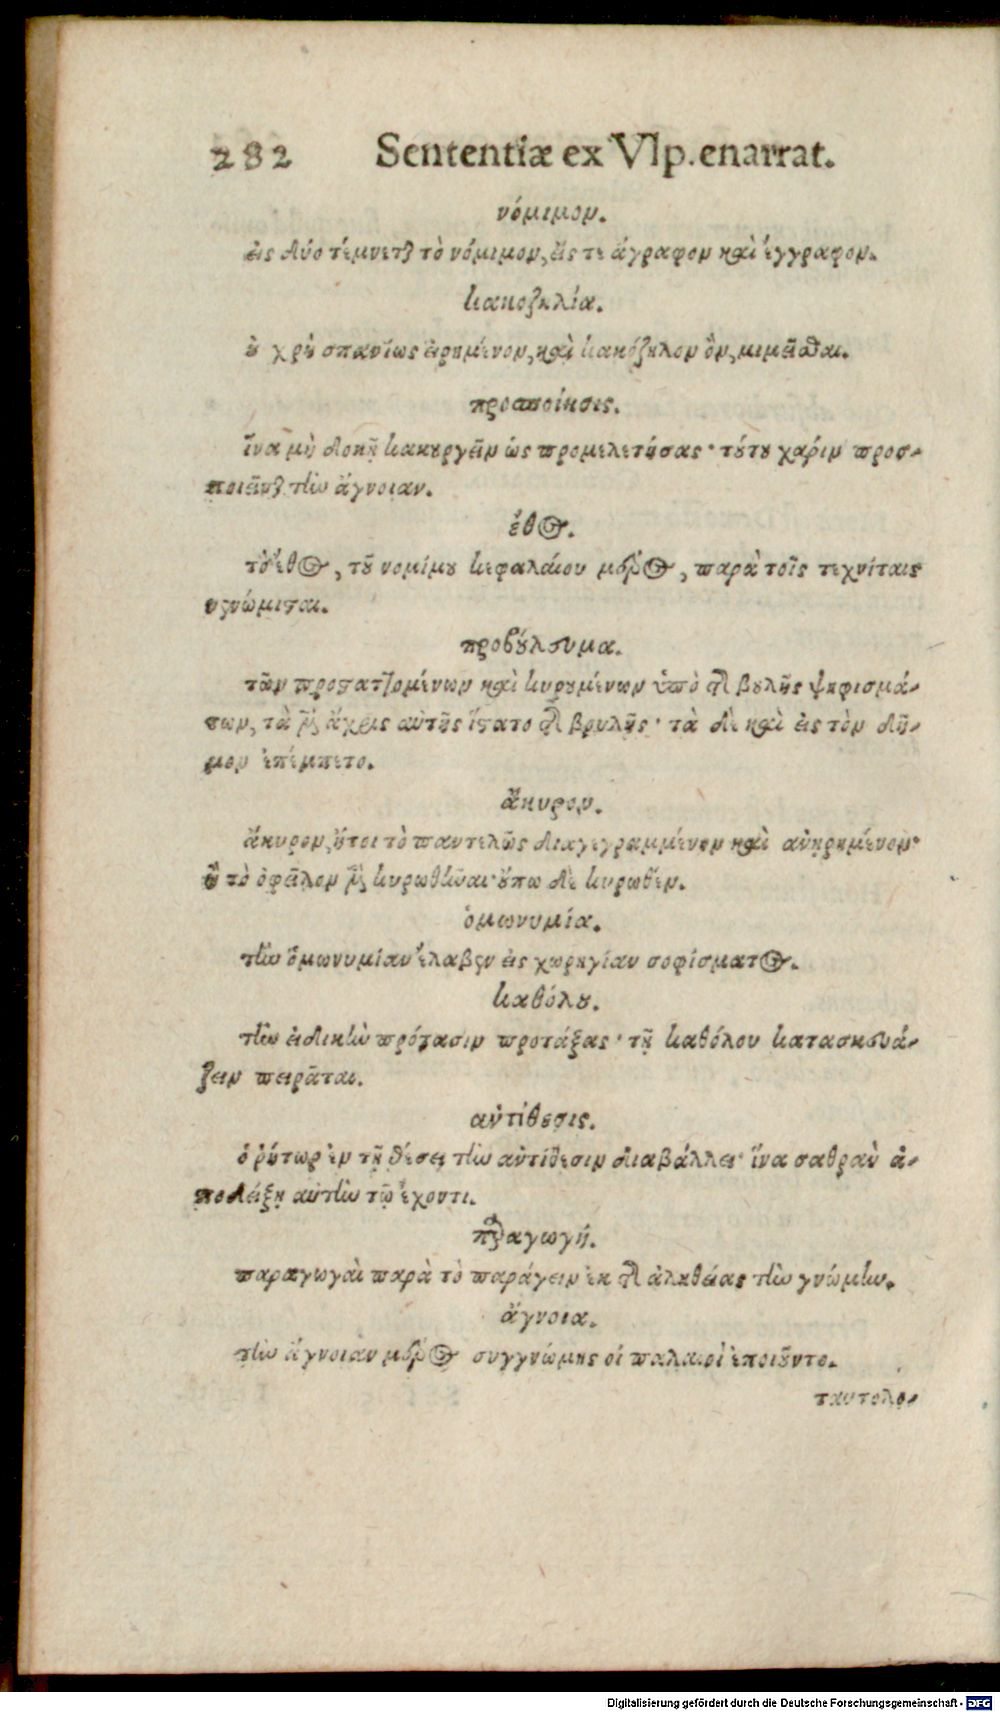 282 Sententiæ ex Vlp. enarrat.
νόμιμον.
εἰς δύο τέμνεται τὸ νόμιμον, εἴς τε ἄγραφον καὶ ἔγγραφον.
κακοζηλία.
οὐ χρὴ σπανίως εἰρημένον, καὶ κακόζηλον ὂν, μιμεῖσθαι.
προσποίησις.
ἵνα μὴ δοκῇ κακουργεῖν ὡς προμελετήσας· τούτου χάριν προσ-
ποιεῖται τὴν ἄγνοιαν.
ἔθος.
τὸ ἔθος, τοῦ νομίμου κεφαλαίου μέρος, παρὰ τοῖς τεχνίταις
προβούλευμα.
τῶν προταττομένων καὶ κυρουμένων ὑπὸ τῆς βουλῆς ψηφισμά-
των, τὰ μὲν ἄχρις αὐτῆς ἵστατο τῆς βουλῆς· τὰ δὲ καὶ εἰς τὸν δῆ-
μον ἐπέμπετο.
ἄκυρον.
ἄκυρον, ἤτοι τὸ παντελῶς διαγεγραμμένον καὶ ἀνῃρημένον·
ἢ τὸ ὀφεῖλον μὲν κυρωθῆναι· οὔπω δὲ κυρωθέν.
ὁμωνυμία.
τὴν ὁμωνυμίαν ἔλαβεν εἰς χωρηγίαν σοφίσματος.
καθόλου.
τὴν εἰδικὴν πρότασιν προτάξας· τῇ καθόλου κατασκευά-
ζειν πειρᾶται.
ἀντίθεσις.
ὁ ῥήτωρ ἐν τῇ θέσει τὴν ἀντίθεσιν διαβάλλει· ἵνα σαθρὰν ἀ-
ποδείξῃ αὐτὴν τῷ ἔχοντι.
παραγωγή.
παραγωγαὶ παρὰ τὸ παράγειν ἐκ τῆς ἀληθείας τὴν γνώμην.
ἄγνοια.
τὴν ἄγνοιαν μέρος συγγνώμης οἱ παλαιοὶ ἐποιοῦντο.
ταυτολο-
Digitalisierung gefördert durch die Deutsche Forschungsgemeinschaft - DFG